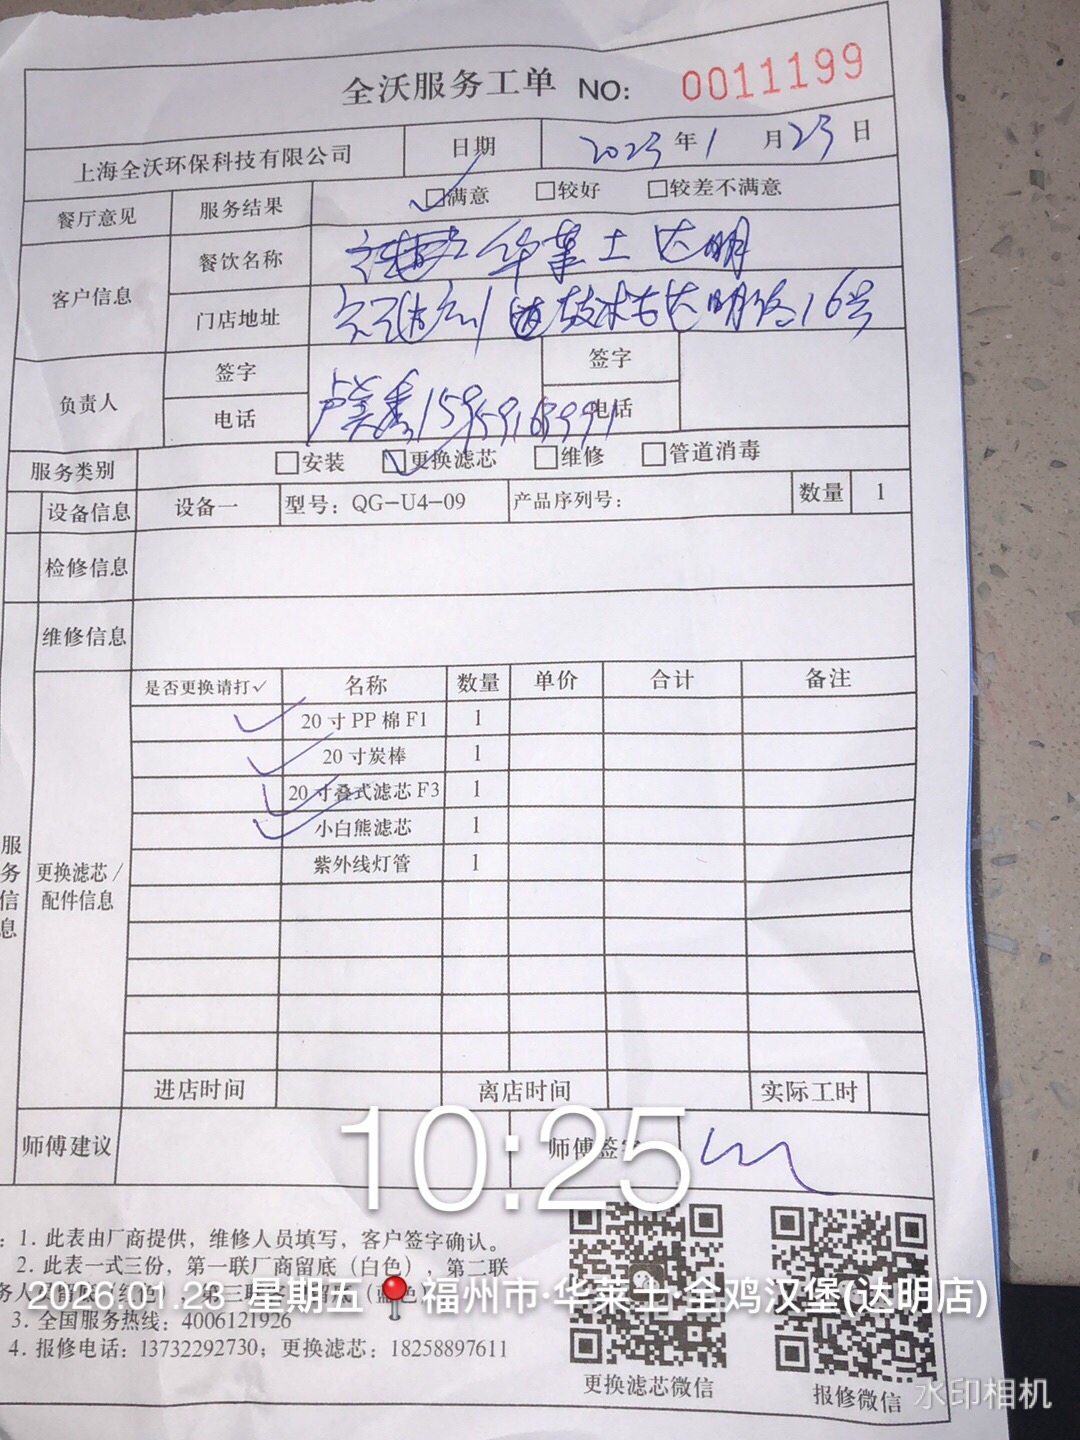 全沃服务工单 NO: 0011199
上海全沃环保科技有限公司 日期 2023年1月23日
餐厅意见 服务结果 ☑满意 □较好 □较差不满意
客户信息 餐饮名称 华莱士达明
门店地址 达明路16号
负责人 签字 签字
电话 电话
服务类别 □安装 ☑更换滤芯 □维修 □管道消毒
设备信息 设备一 型号：QG-U4-09 产品序列号： 数量 1
检修信息
维修信息
是否更换请打✓ 名称 数量 单价 合计 备注
✓ 20寸PP棉F1 1
✓ 20寸炭棒 1
✓ 20寸叠式滤芯F3 1
✓ 小白熊滤芯 1
紫外线灯管 1
服务信息
更换滤芯/
配件信息
进店时间 离店时间 实际工时
师傅建议 师傅签字
10:25
1. 此表由厂商提供，维修人员填写，客户签字确认。
2. 此表一式三份，第一联厂商留底（白色），第二联
2026.01.23 星期五 福州市·华莱士·全鸡汉堡(达明店)
3. 全国服务热线：4006121926
4. 报修电话：13732292730；更换滤芯：18258897611
更换滤芯微信 报修微信
水印相机